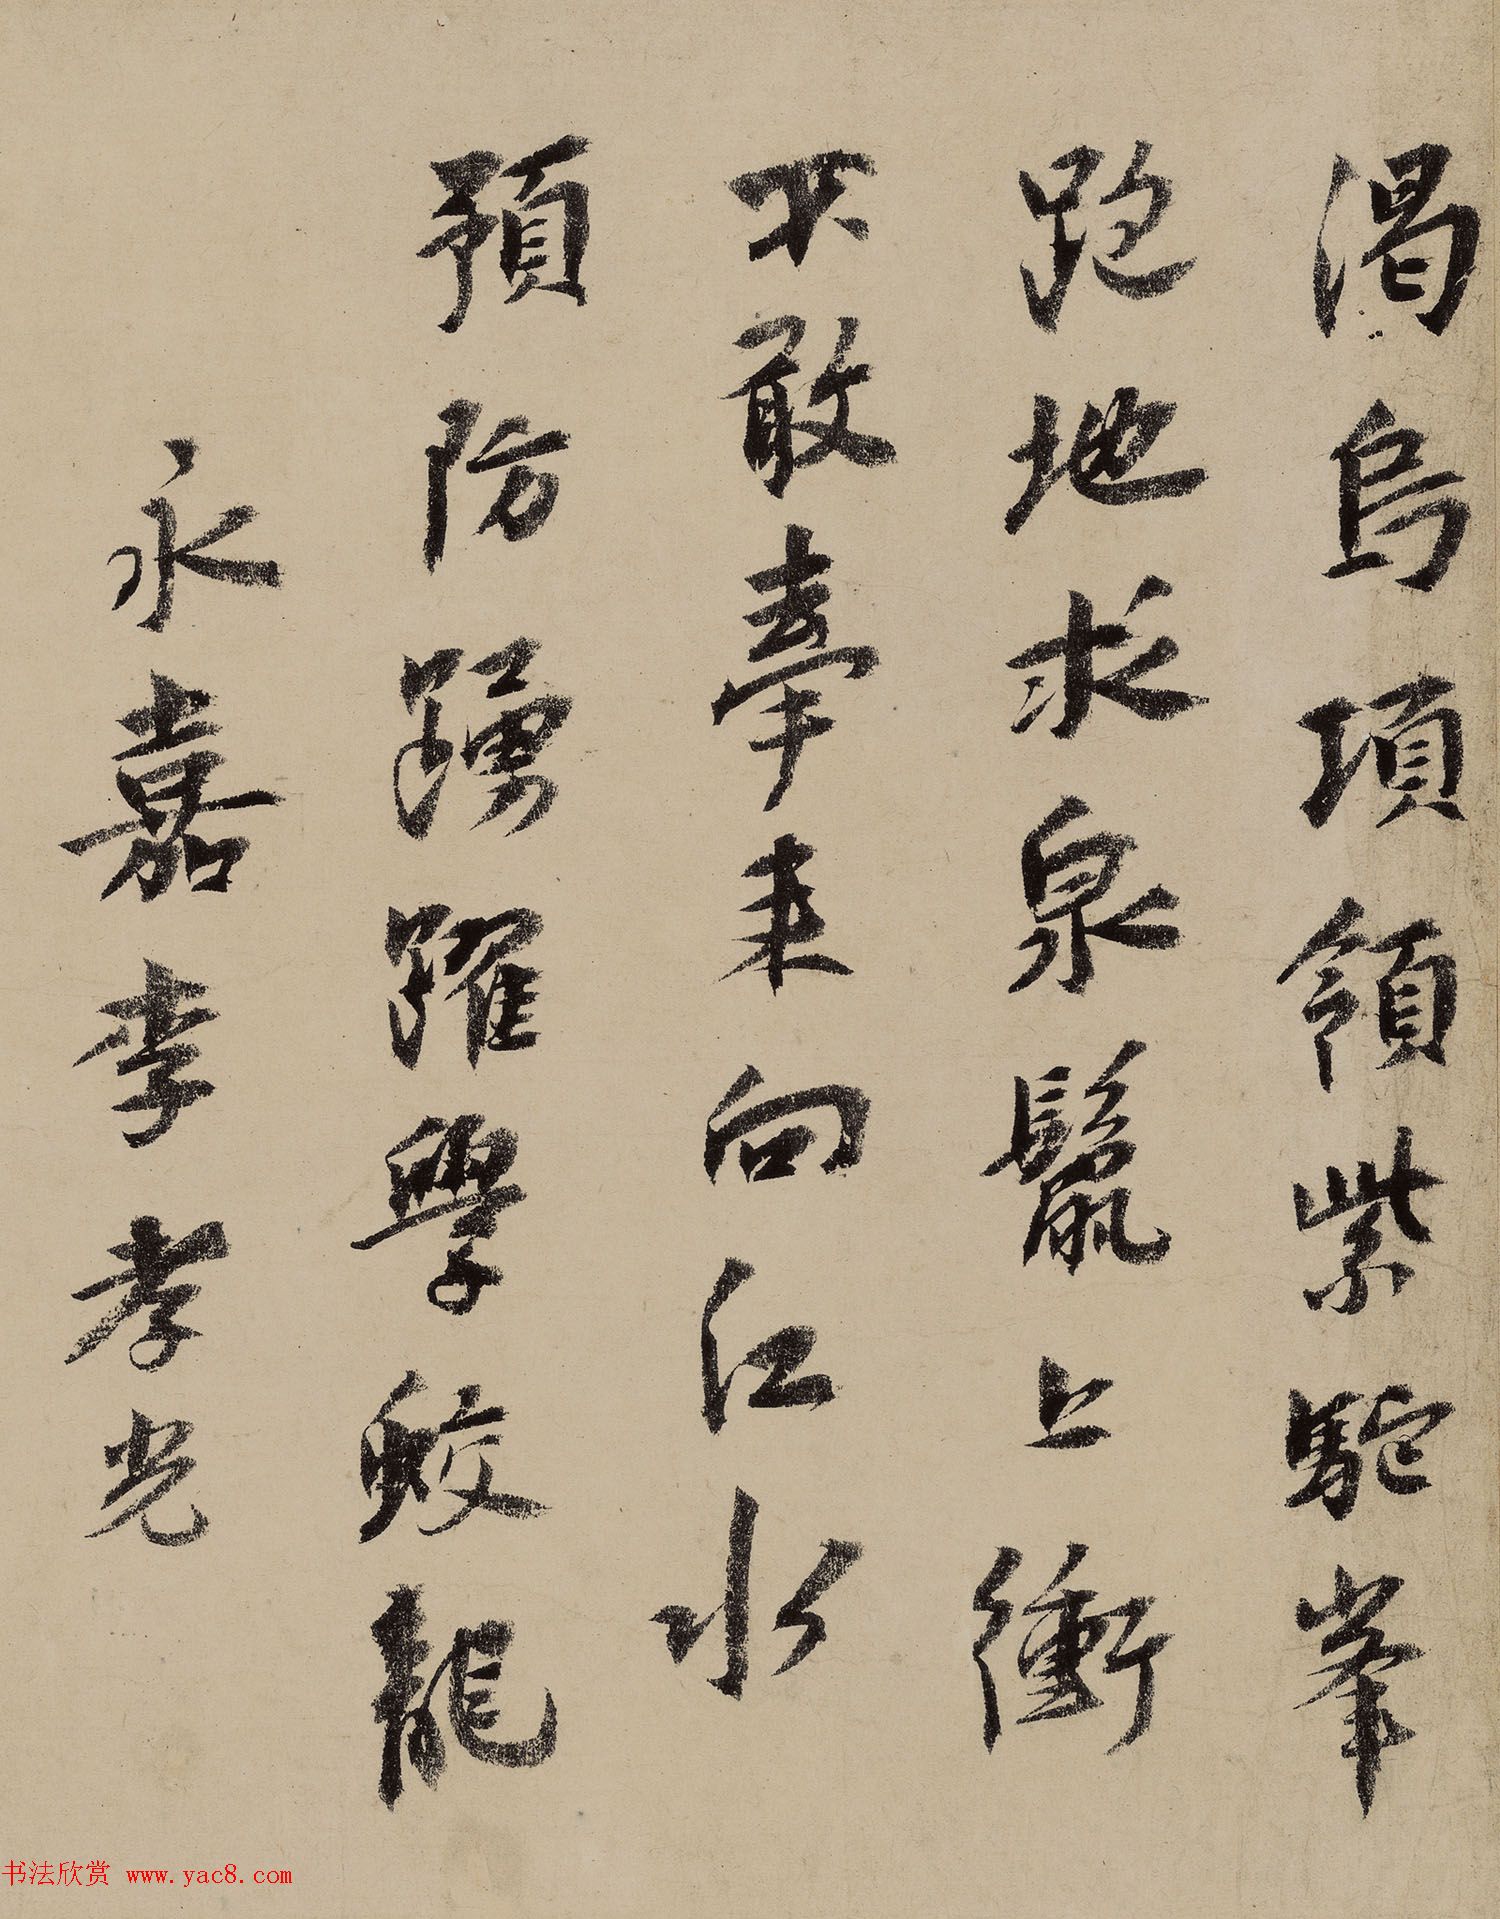 渴烏項領紫駝峯
跑地求泉鬣上衝
不敢牽来向江水
預防踴躍學鮫龍
永嘉李孝光
书法欣赏 www.yac8.com